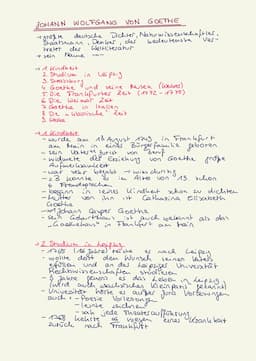 JOHANN WOLFGANG VON GOETHE
→ größte deutsche Dichter, Naturwissenschaftler,
Staatmann, Denker, der bedeutendste Ver-
treter der Weltliteratur
→ sein Name
→ 1. Kindheit
2. Studium in Leipzig
3. Strassburg
4. Goethe und seine Musen
5. Die Frankfurter Zeit (1772 - 1775)
6. Die Weimar Zeit
7. Goethe in Italien
8. Die "klassische" Zeit
9. Werke
→ 1. Kindheit
→ wurde am August 1749 in Frankfurt
am Main in eines Bürgerfamilie geboren
→ sein Vater Jurist von Beruf
→ widmete der Erziehung von Goethe große
Aufmerksamkeit
→ war sehr begabt
→ z.B. konnte er im Alter von 13. schon
6 Fremdsprachen
→ begann in seines Kindheit schon zu dichten
→ Mutter von ihm ist Catharina Elisabeth
Goethe
→ Johann Casper Goethe
→ sein Geburtshaus ist auch bekannt als das
"Goethehaus" in Frankfurt am Main
→ 2. Studium in Leipzig
→ 1765 (16 Jahre) zog er nach Leipzig
→ wollte dort den Wunsch seines Vaters
erfüllen und an der Leipziger Universität
Rechtswissenschaften studieren
→ 3 Jahre genoss er das Leben in Leipzig
(wird auch Kleinparis genannt)
→ Universität hörte er außer Jura Vorlesungen
auch: - Poesie Vorlesung
- lernte zeichnen
- sah jede Theateraufführung
→ 1768 kehrte er wegen eines Krankheit
zurück nach Frankfurt